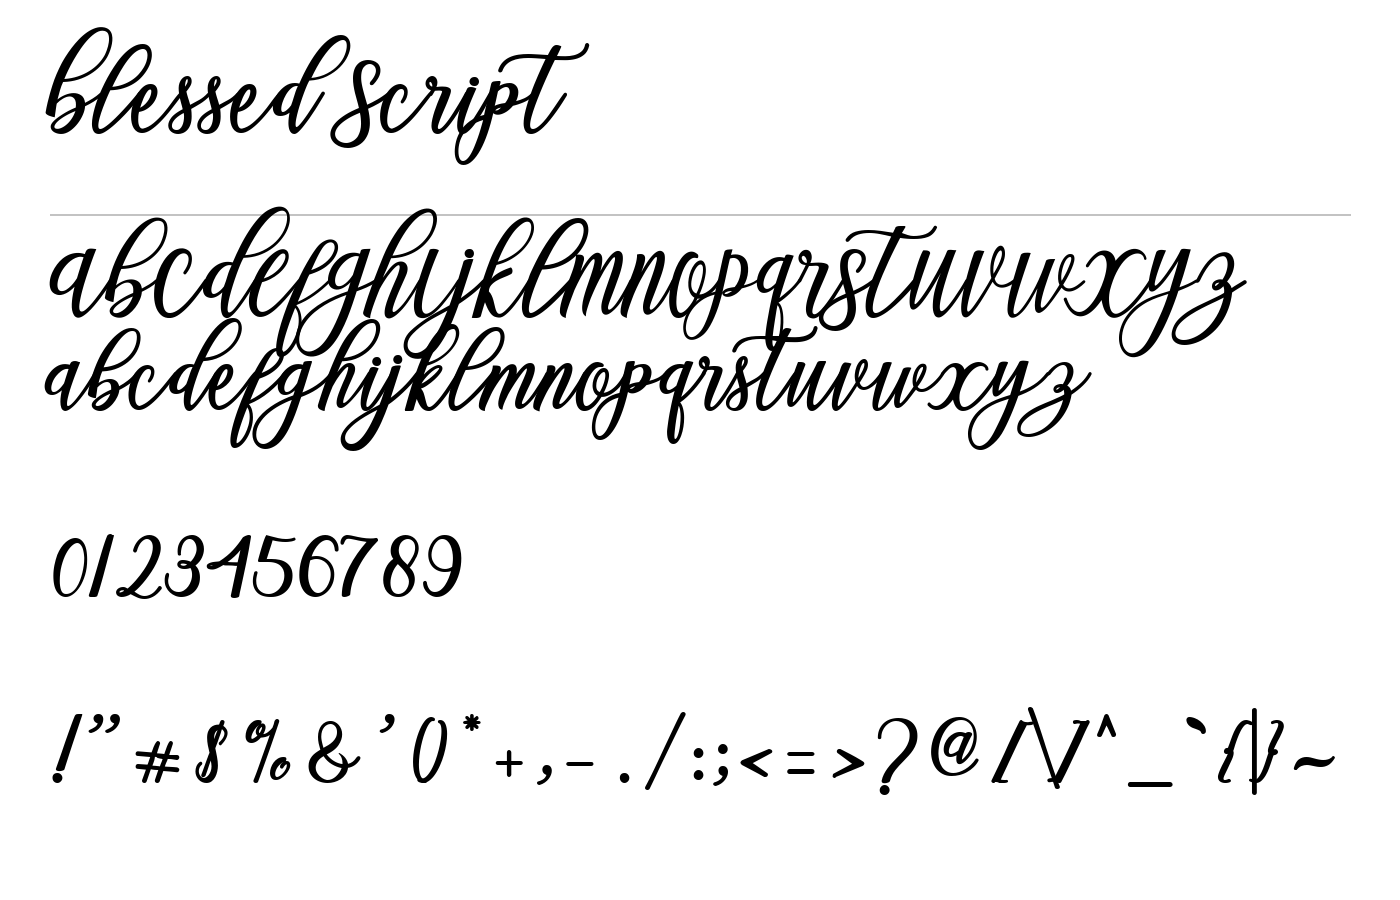 blessed Script
abcdefghijklmnopqrstuvwxyz
abcdefghijklmnopqrstuvwxyz
0123456789
!"#$%&'()*+,-./:;<=>?@[\]^_`{|}~